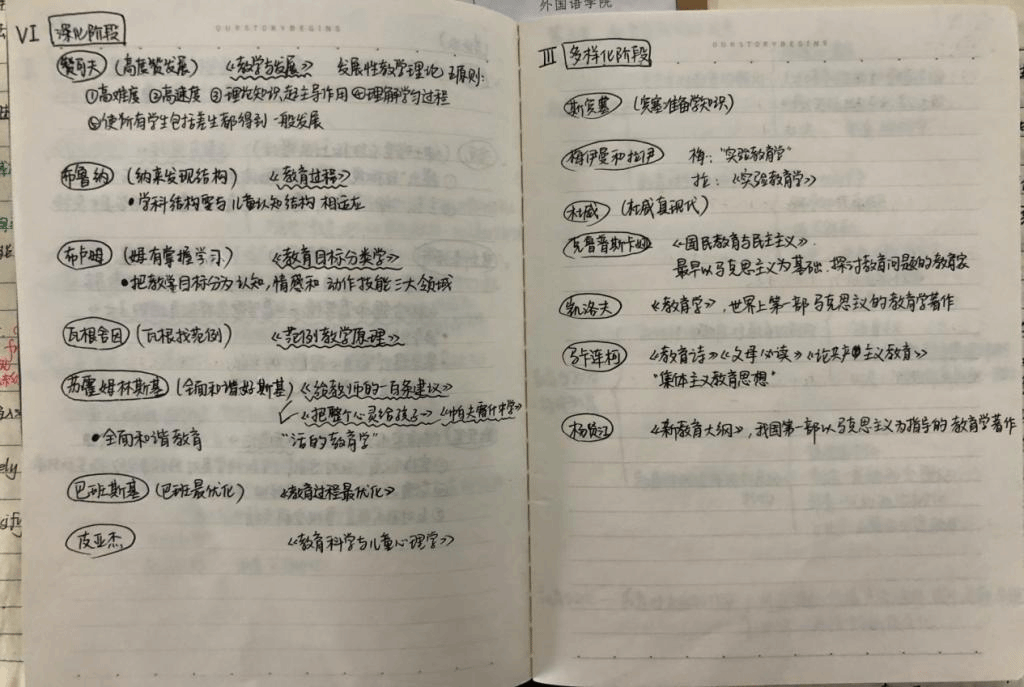 外国语学院
VI 深化阶段
OURSTORYBEGINS
赞可夫 (高度赞发展) 《教学与发展》 发展性教学理论 五原则:
①高难度 ②高速度 ③理论知识起主导作用 ④理解学习过程
⑤使所有学生包括差生都得到一般发展
布鲁纳 (纳来发现结构) 《教育过程》
•学科结构要与儿童认知结构相适应
布卢姆 (姆有掌握学习) 《教育目标分类学》
•把教学目标分为认知,情感和动作技能三大领域
瓦根舍因 (瓦根找范例) 《范例教学原理》
苏霍姆林斯基 (全面和谐好斯基) 《给教师的一百条建议》
《把整个心灵给孩子》《帕夫雷什中学》
•全面和谐教育 "活的教育学"
巴班斯基 (巴班最优化) 《教育过程最优化》
皮亚杰 《教育科学与儿童心理学》
III 多样化阶段
OURSTORYBEGINS
斯宾塞 (宾塞准备学知识)
梅伊曼和拉伊 梅:"实验教育学"
拉:《实验教育学》
杜威 (杜威真现代)
克鲁普斯卡娅 《国民教育与民主主义》.
最早以马克思主义为基础,探讨教育问题的教育家
凯洛夫 《教育学》,世界上第一部马克思主义的教育学著作
马卡连柯 《教育诗》《父母必读》《论共产主义教育》
"集体主义教育思想"
杨贤江 《新教育大纲》,我国第一部以马克思主义为指导的教育学著作